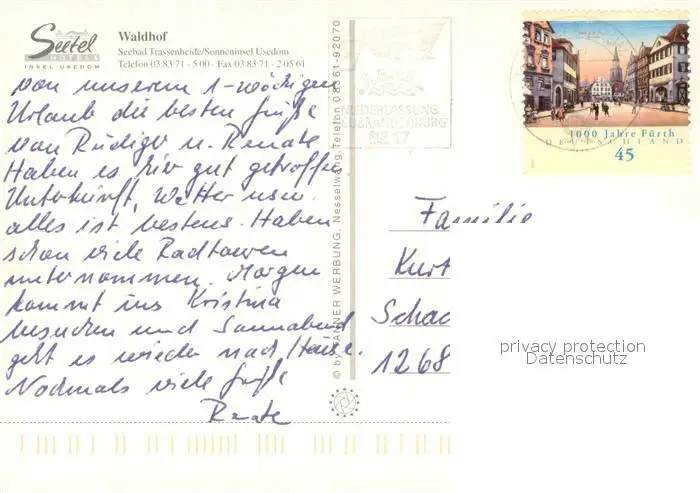 Seetel
HOTELS
INSEL USEDOM
Waldhof
Seebad Trassenheide/Sonneninsel Usedom
Telefon 03 83 71 - 5 00 - Fax 03 83 71 - 2 05 61
von unserem 1-wöchigen
Urlaub die besten Grüße
von Rüdiger u. Renate
Haben es hier gut getroffen
Unterkunft, Wetter usw.
alles ist bestens. Haben
schon viele Radtouren
unternommen. Morgen
kommt uns Kristina
besuchen und Sonnabend
geht es wieder nach Hause.
Nochmals viele Grüße
Renate
© by HANNER WERBUNG, Nesselwang, Telefon 08361-92070
NIEDERLASSUNG
BZ 17
1000 Jahre Fürth
DEUTSCHLAND
45
Familie
Kurt
Schac
1268
privacy protection
Datenschutz